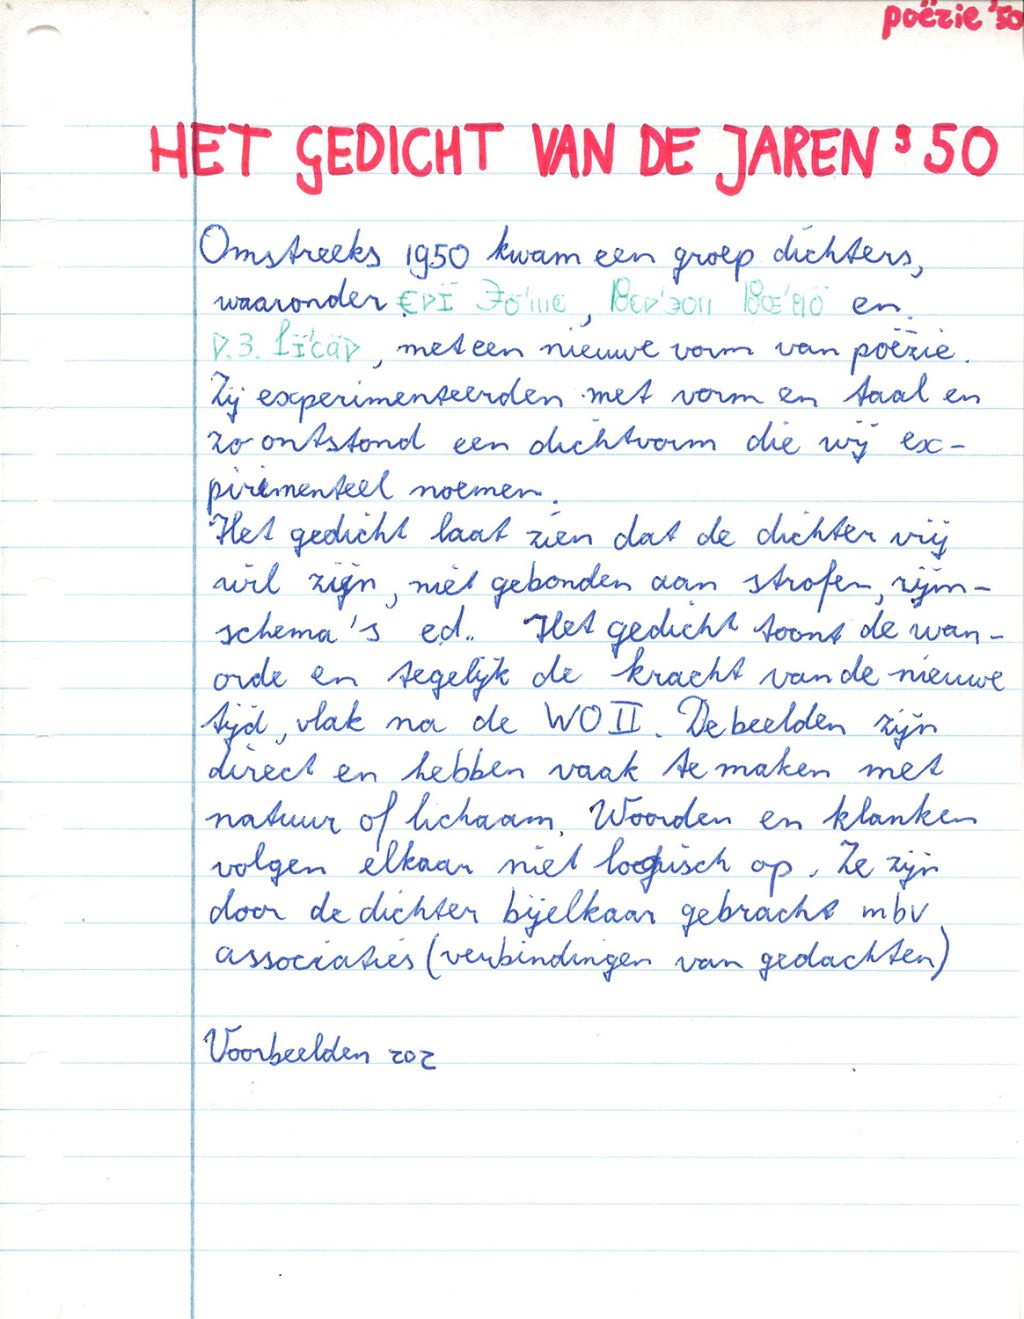 poëzie '50
HET GEDICHT VAN DE JAREN '50
Omstreeks 1950 kwam een groep dichters,
waaronder , en
, met een nieuwe vorm van poëzie.
Zij experimenteerden met vorm en taal en
zo ontstond een dichtvorm die wij ex-
pirimenteel noemen.
Het gedicht laat zien dat de dichter vrij
wil zijn, niet gebonden aan strofen, rijm-
schema's ed.. Het gedicht toont de wan-
orde en tegelijk de kracht van de nieuwe
tijd, vlak na de WO II. De beelden zijn
direct en hebben vaak te maken met
natuur of lichaam. Woorden en klanken
volgen elkaar niet logisch op. Ze zijn
door de dichter bijelkaar gebracht mbv
associaties (verbindingen van gedachten)
Voorbeelden zoz